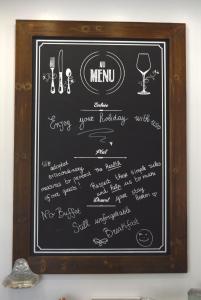 AU
MENU
Entrée
Enjoy your Holiday with us
Plat
We adopted
extraordinary
measures to protect the Health
of our guests!
Respect these simple rules
and help us to make
your stay
Dessert
No Buffet
Still unforgettable
Breakfast